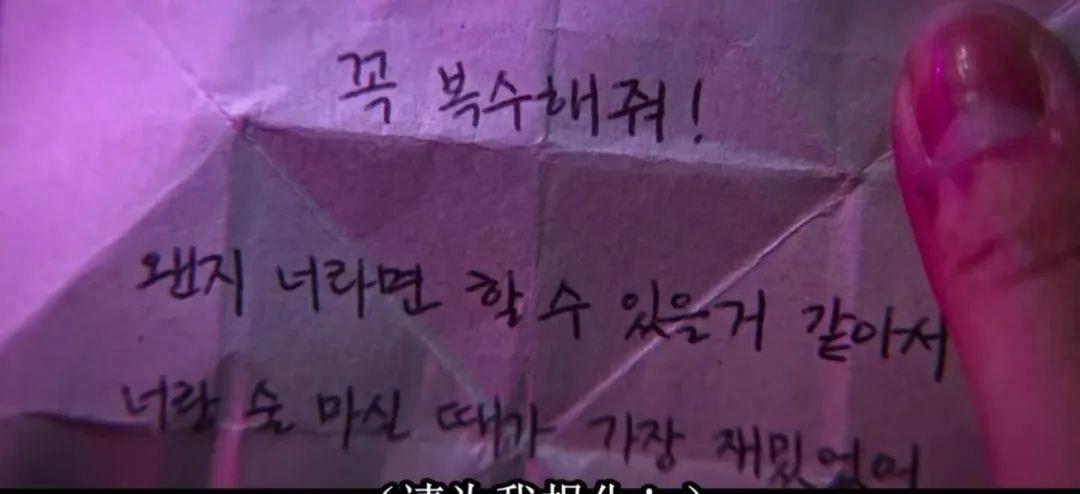 꼭 복수해줘!
왠지 너라면 할 수 있을거 같아서
너랑 술 마실 때가 가장 재밌었어
(請为我报仇！)